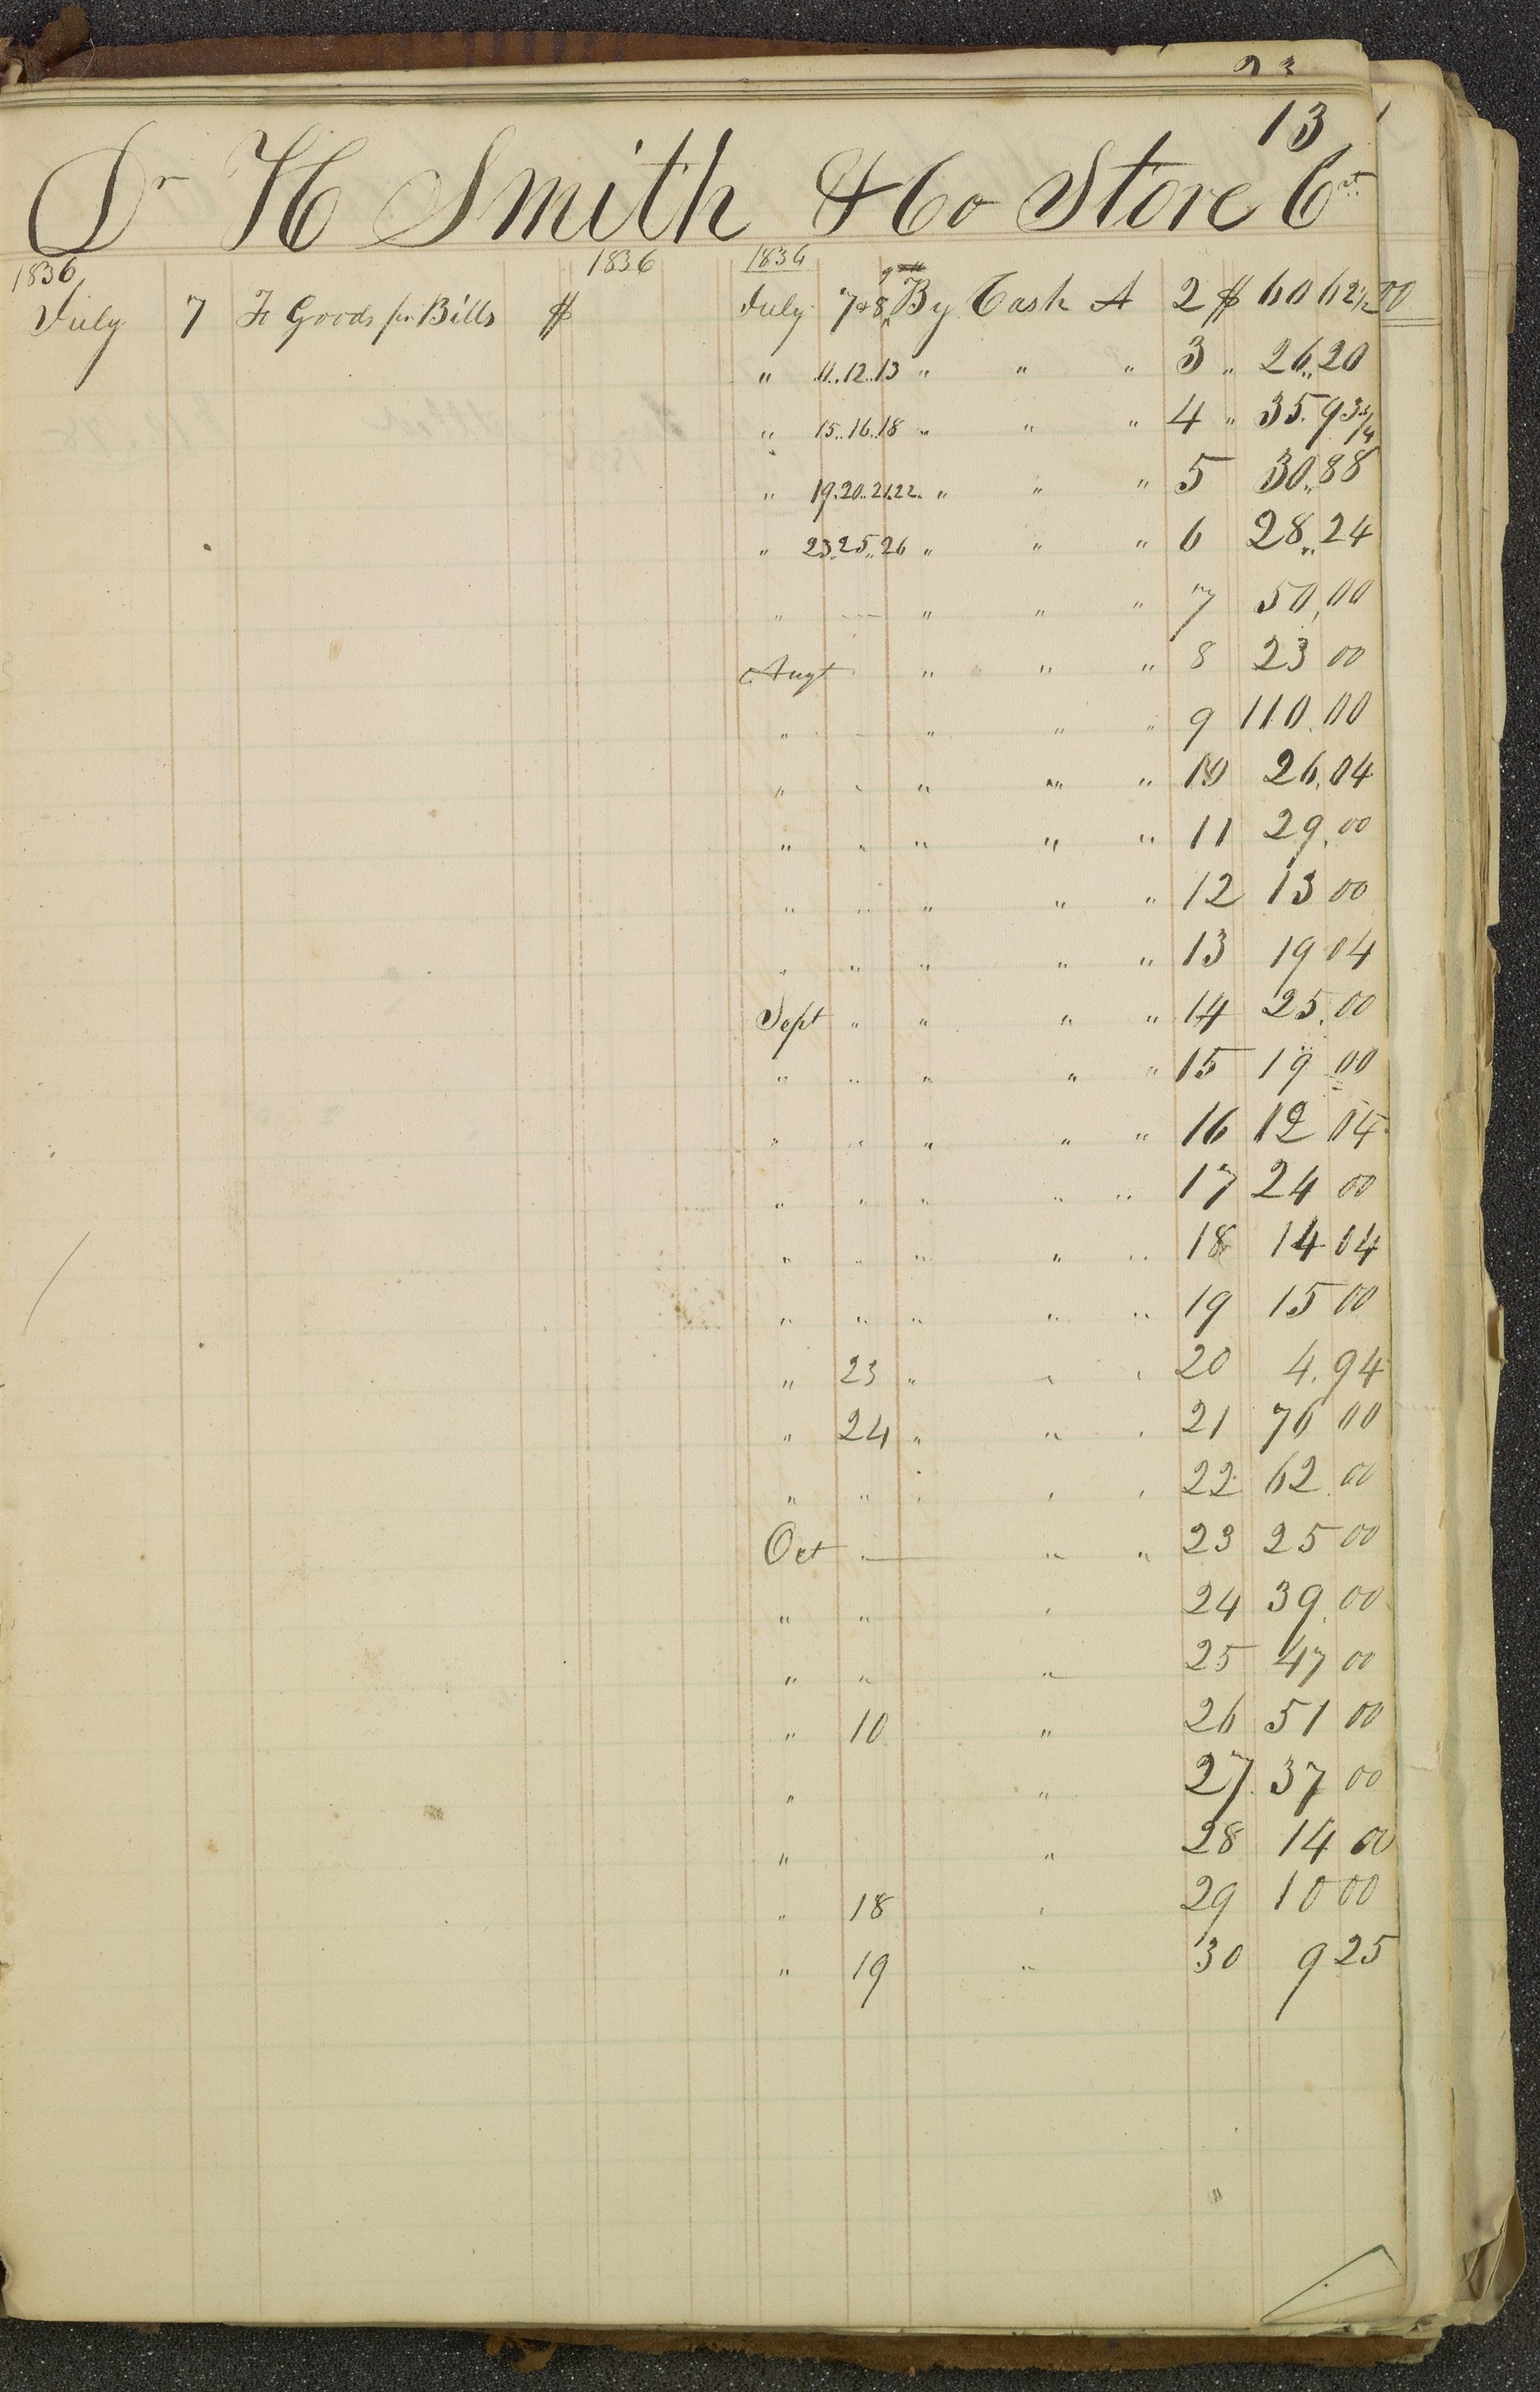 23
13
Dr H Smith & Co Store Cr
1836 1836 1836
July 7 To Goods pr Bills $ July 7&8 By Cash A 2 $ 60 62 1/2
" 11..12..13 " " " 3 " 26..20
" 15..16..18 " " " 4 " 35.93 3/4
" 19.20..21.22. " " " 5 30..88
" 23.25..26 " " " 6 28..24
" — " " " 7 50,00
Augt " " " 8 23 00
" - " " " 9 110.00
" " " " " 10 26.04
" " " " " 11 29.00
" " " " " 12 13 00
" " " " " 13 19 04
Sept " " " " 14 25.00
" " " " " 15 19 00
" " " " " 16 12 04
" " " " " 17 24 00
" " " " " 18 14 04
" " " " " 19 15 00
" 23 " " " 20 4.94
" 24 " " " 21 76 00
" " " " " 22 62.00
Oct — " " 23 25 00
" " " 24 39.00
" " " 25 47 00
" 10 " 26 51 00
" " 27 37 00
" " 28 14 00
" 18 " 29 10 00
" 19 " 30 9 25